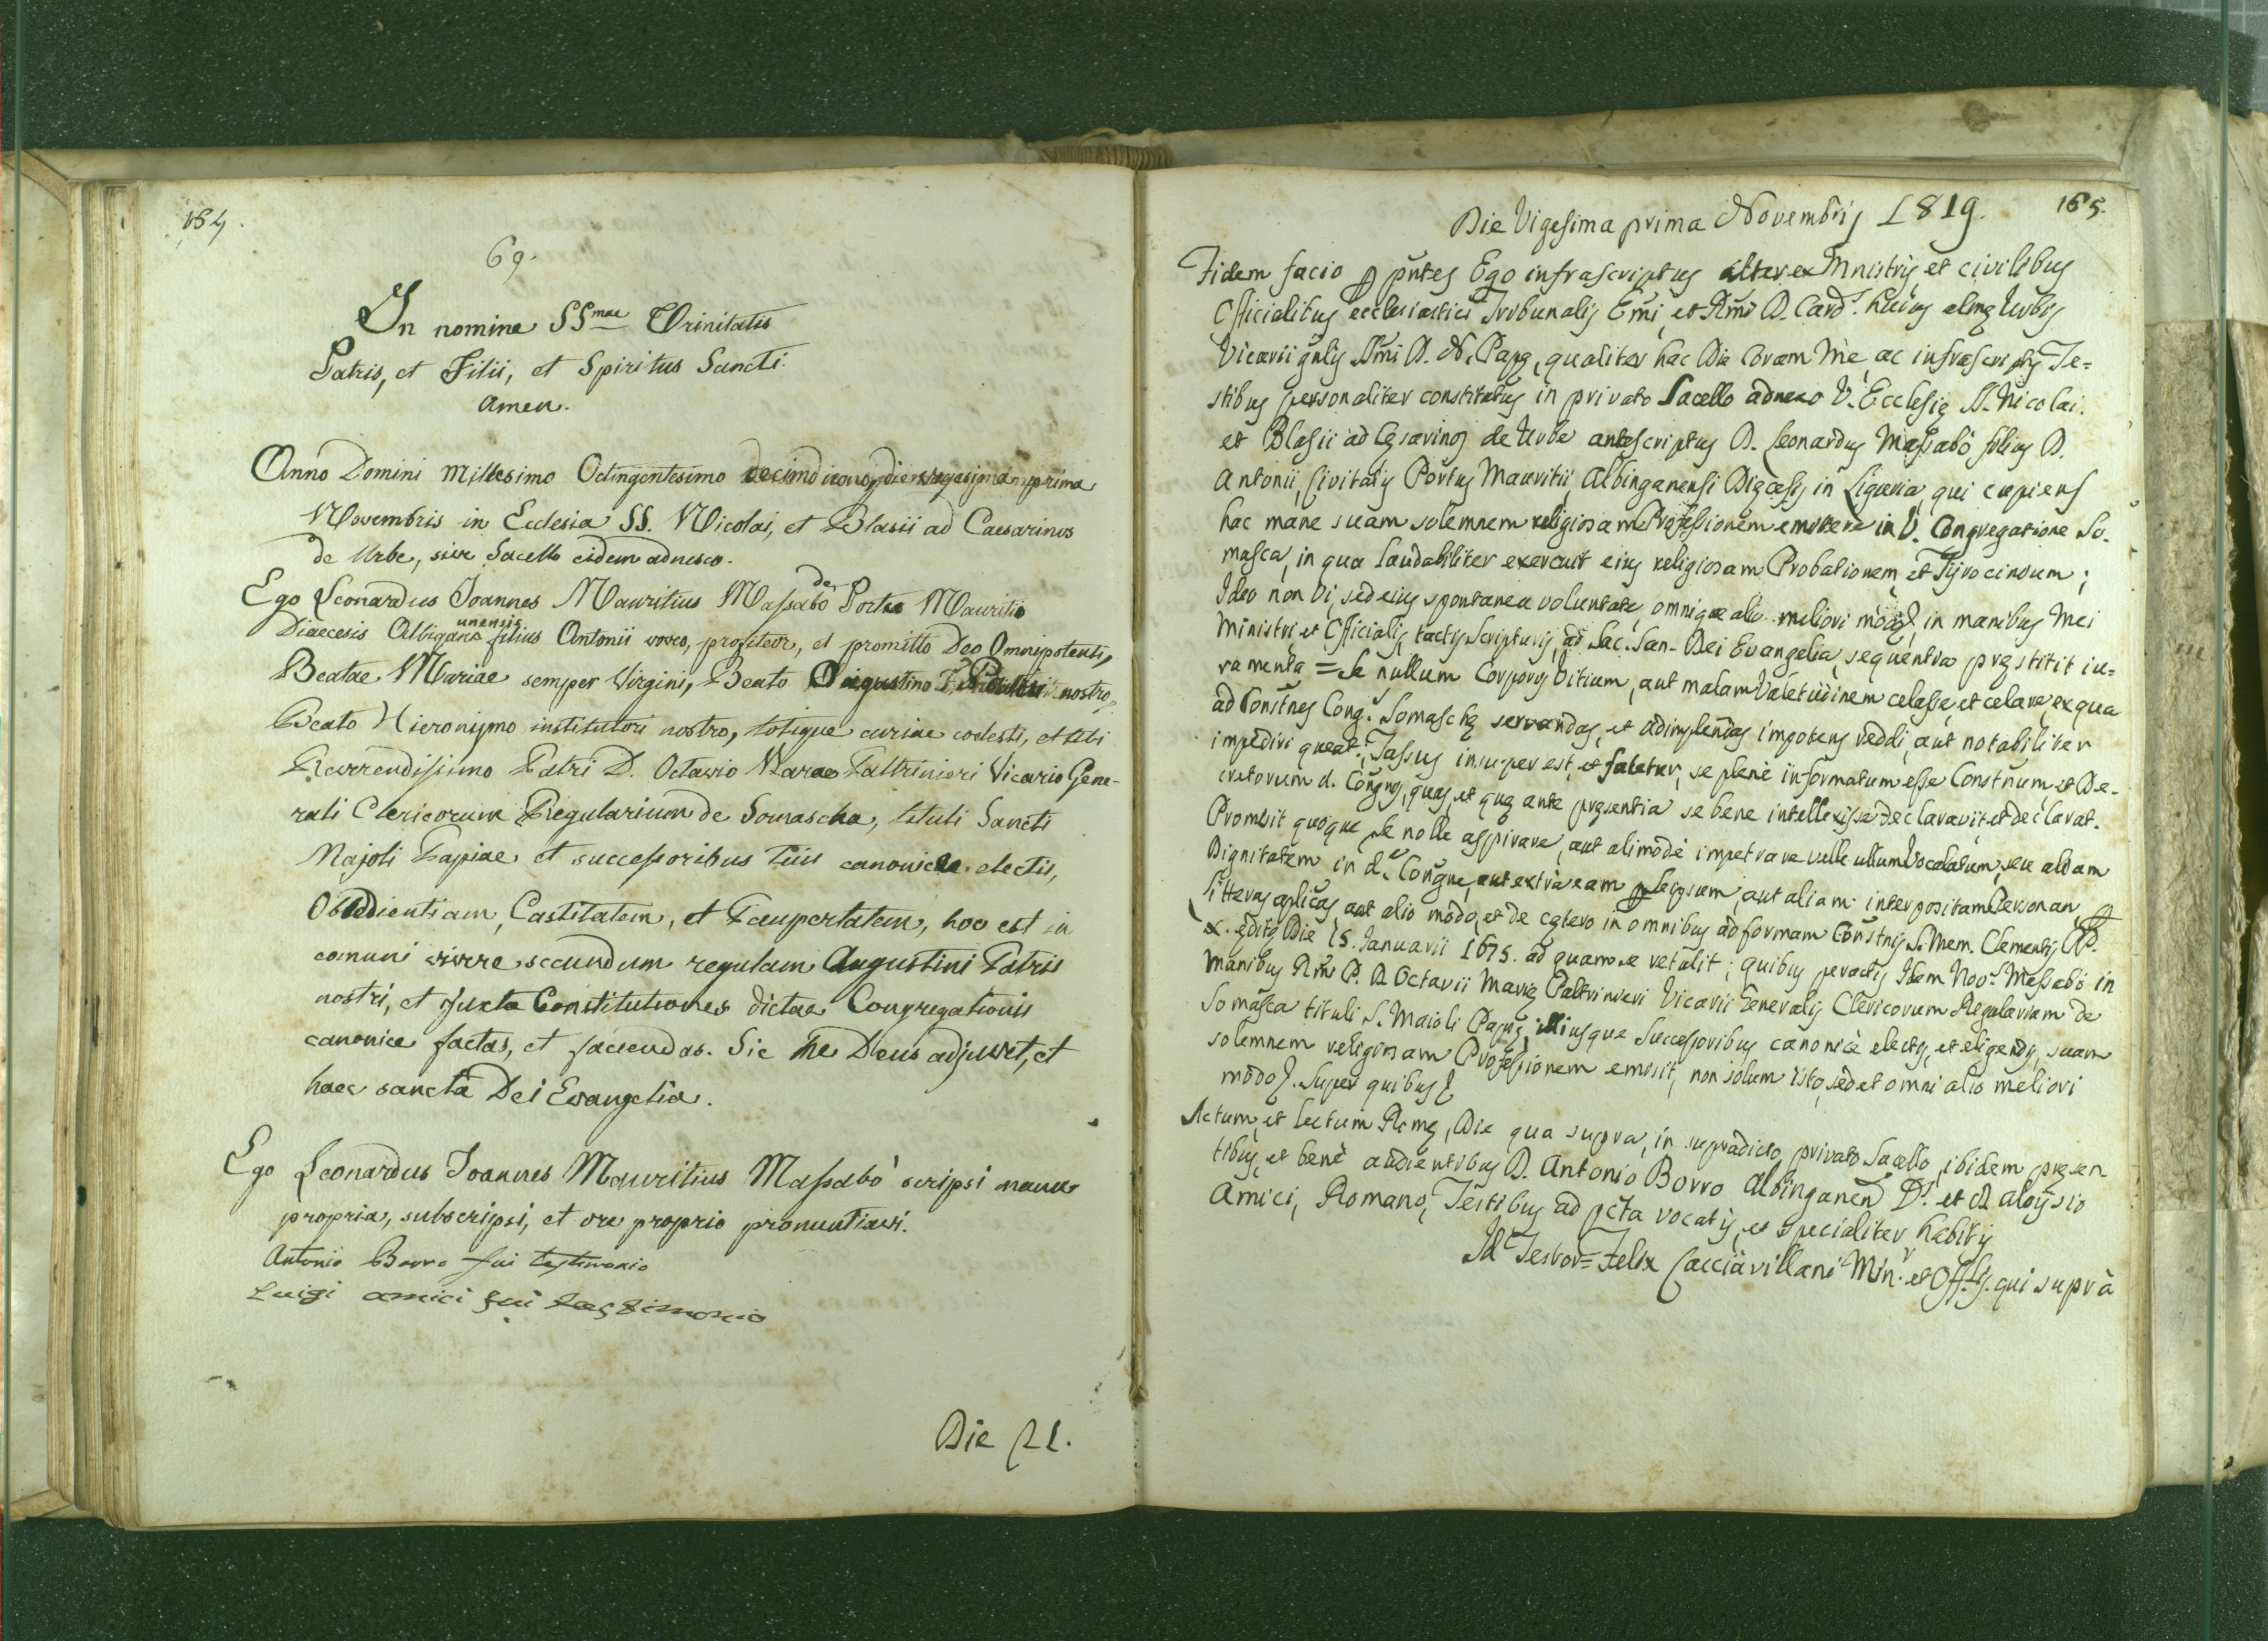 164.
69.
In nomine SSmae Trinitatis
Patris, et Filii, et Spiritus Sancti.
Amen.
Anno Domini Millesimo Octingentesimo decimo nono, die vigesima prima
Novembris in Ecclesia SS. Nicolai, et Blasii ad Caesarinos
de Urbe, sive Sacello eidem adnexo.
Ego Leonardus Joannes Mauritius Massabò de Portu Mauritio
Diaecesis Albiganensis filius Antonii voveo, profiteor, et promitto Deo Omnipotenti,
Beatae Mariae semper Virgini, Beato Augustino Patri nostro,
Beato Hieronymo institutori nostro, totique curiae coelesti, et tibi
Reverendissimo Patri D. Octavio Mariae Paltrinieri Vicario Gene-
rali Clericorum Regularium de Somascha, tituli Sancti
Majoli Papiae et successoribus tuis canonice electis,
Obedientiam, Castitatem, et Paupertatem, hoc est in
comuni vivere secundum regulam Augustini Patris
nostri, et juxta Constitutiones dictae Congregationis
canonice factas, et faciendas. Sic me Deus adjuvet, et
haec sancta Dei Evangelia.
Ego Leonardus Joannes Mauritius Massabò scripsi manu
propria, subscripsi, et ore proprio pronuntiavi.
Antonio Borro fui testimonio
Luigi amici fui testimonio
Die 21.
165.
Die Vigesima prima Novembris 1819.
Fidem facio p pntes Ego infrascriptus alter ex Mnistris et civilibus
Officialibus ecclesiastici Tribunalis Emi, et Rmi D. Card. huius almę Urbis
Vicarii gnlis SSmi D. N. Papę, qualiter hac Die Coram Me, ac infrascriptis Te=
stibus personaliter constitutus in privato Sacello adnexo V. Ecclesię SS. Nicolai.
et Blasii ad Cęsarinos de Urbe antescriptus D. Leonardus Massabò filius D.
Antonii, Civitatis Portus Mauritii, Albinganensis Dięcesis in Liguria, qui cupiens
hac mane suam solemnem religiosam Professionem emittere in V. Congregatione So-
masca, in qua laudabiliter exercuit eius religiosam Probationem et Tyrocinium;
Ideo non vi, sed eius spontanea voluntate, omnique alio meliori modo, in manibus Mei
Ministri, et Officialis, tactis Scripturis, ad Sac. San. Dei Evangelia, sequentia pręstitit iu=
ramenta = Se nullum Corporis Vitium, aut malam Valetudinem celasse, et celare, ex qua
ad Constnes Cong. Somaschę servandas, et adimplendas impotens reddi, aut notabiliter
impediri queat; Fassus insuper est, et fatetur, se plenè informatum esse Constnum, et De-
cretorum d. Congnis, quas, et quę ante pręsentia se bene intellexisse declaravit, et declarat.
Promisit quoque Se nolle aspirare, aut alimodè impetrare velle ullum Vocalatum, seu aliam
Dignitatem in d. Congne, aut extra eam p seipsum, aut aliam interpositam Personam, p
Litteras aplicas, aut alio modo, et de cętero in omnibus ad formam Constnis S. Mem. Clementis PP.
X. editę Die 15. Januarii 1675. ad quam se retulit; quibus peractis Idem Massabò in
manibus Rmi P. D. Octavii Marię Paltrinieri Vicarii Generalis Clericorum Regularium de
Somasca tituli S. Maioli Papię, illiusque Successoribus canonicè electis, et eligendis, suam
solemnem religiosam Professionem emisit, non solum isto, sed et omni alio meliori
modo. Super quibus
Actum, et lectum Romę, Die qua supra, in supradicto privato Sacello, ibidem presen
tibus, et benè audientibus D. Antonio Borro Albinganen D. et D. Aloysio
Amici, Romano, Testibus ad pcta vocatis, et specialiter habitis
Felix Cacciavillani Min. et Offlis. qui suprà